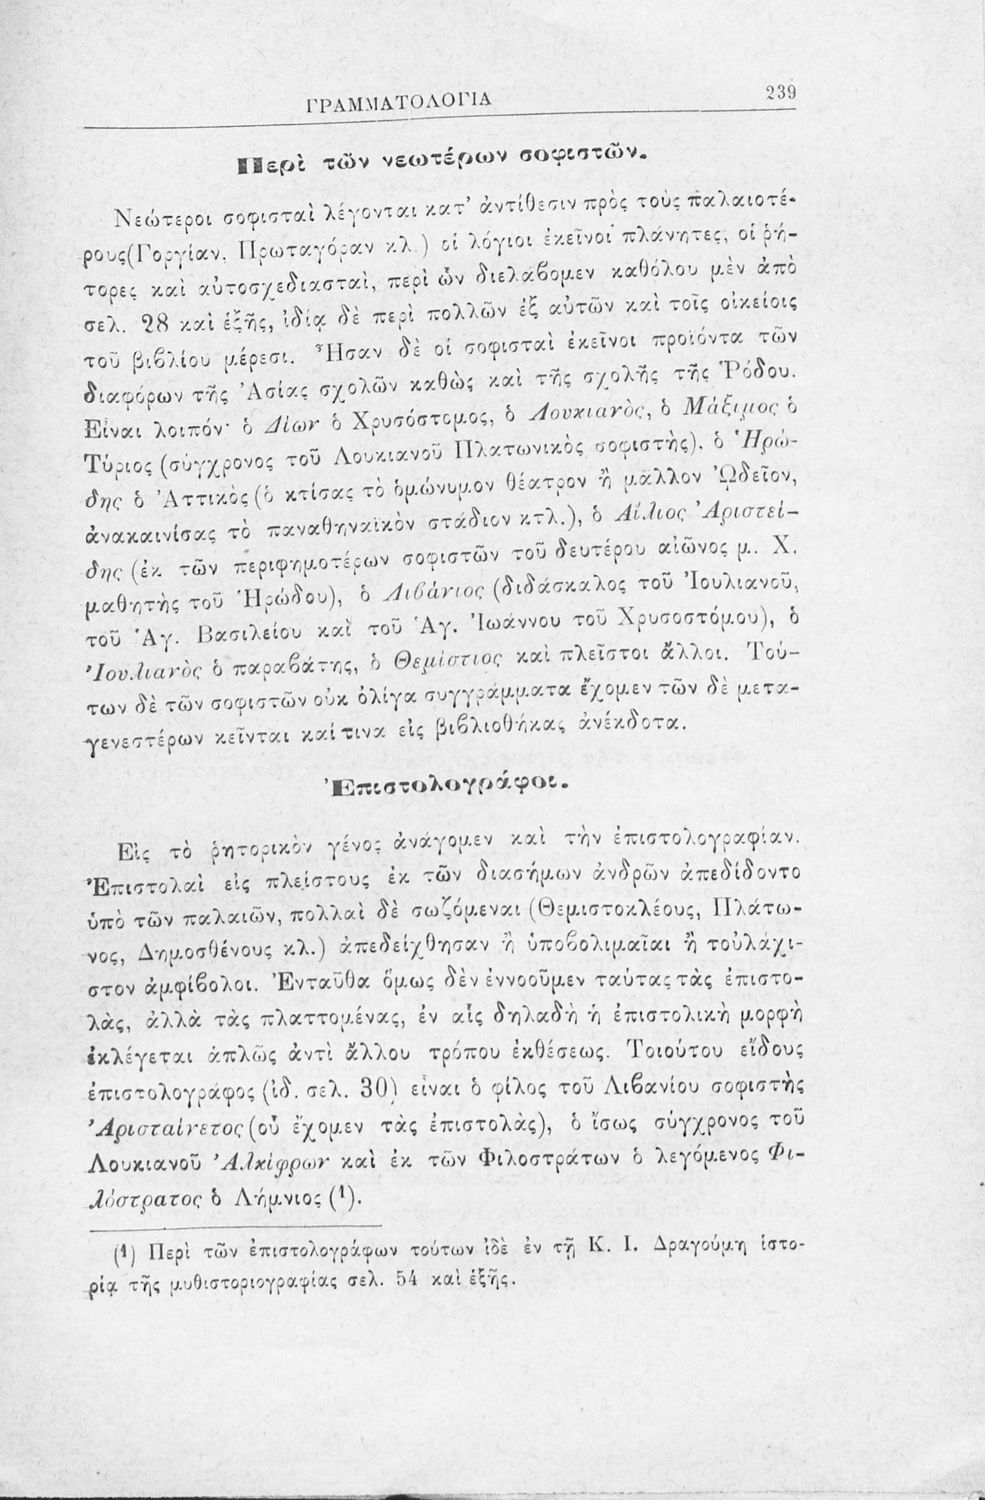 ΓΡΑΜΜΑΤΟΛΟΓΙΑ 239
Περὶ τῶν νεωτέρων σοφιστῶν.
Νεώτεροι σοφισταὶ λέγονται κατ’ ἀντίθεσιν πρὸς τοὺς παλαιοτέ-
ρους(Γοργίαν, Πρωταγόραν κλ.) οἱ λόγιοι ἐκεῖνοι πλάνητες, οἱ ῥή-
τορες καὶ αὐτοσχεδιασταὶ, περὶ ὧν διελάβομεν καθόλου μὲν ἀπὸ
σελ. 28 καὶ ἑξῆς, ἰδίᾳ δὲ περὶ πολλῶν ἐξ αὐτῶν καὶ τοῖς οἰκείοις
τοῦ βιβλίου μέρεσι. Ἦσαν δὲ οἱ σοφισταὶ ἐκεῖνοι προϊόντα τῶν
διαφόρων τῆς Ἀσίας σχολῶν καθὼς καὶ τῆς σχολῆς τῆς Ῥόδου.
Εἶναι λοιπόν· ὁ Δίων ὁ Χρυσόστομος, ὁ Λουκιανὸς, ὁ Μάξιμος ὁ
Τύριος (σύγχρονος τοῦ Λουκιανοῦ Πλατωνικὸς σοφιστὴς), ὁ Ἡρώ-
δης ὁ Ἀττικὸς (ὁ κτίσας τὸ ὁμώνυμον θέατρον ἢ μᾶλλον Ὠδεῖον,
ἀνακαινίσας τὸ παναθηναϊκὸν στάδιον κτλ.), ὁ Αἴλιος Ἀριστεί-
δης (ἐκ τῶν περιφημοτέρων σοφιστῶν τοῦ δευτέρου αἰῶνος μ. Χ.
μαθητὴς τοῦ Ἡρώδου), ὁ Λιβάνιος (διδάσκαλος τοῦ Ἰουλιανοῦ,
τοῦ Ἁγ. Βασιλείου καὶ τοῦ Ἁγ. Ἰωάννου τοῦ Χρυσοστόμου), ὁ
Ἰουλιανὸς ὁ παραβάτης, ὁ Θεμίστιος καὶ πλεῖστοι ἄλλοι. Τού-
των δὲ τῶν σοφιστῶν οὐκ ὀλίγα συγγράμματα ἔχομεν τῶν δὲ μετα-
γενεστέρων κεῖνται καί τινα εἰς βιβλιοθήκας ἀνέκδοτα.
Ἐπιστολογράφοι.
Εἰς τὸ ῥητορικὸν γένος ἀνάγομεν καὶ τὴν ἐπιστολογραφίαν.
Ἐπιστολαὶ εἰς πλείστους ἐκ τῶν διασήμων ἀνδρῶν ἀπεδίδοντο
ὑπὸ τῶν παλαιῶν, πολλαὶ δὲ σωζόμεναι (Θεμιστοκλέους, Πλάτω-
νος, Δημοσθένους κλ.) ἀπεδείχθησαν ἢ ὑποβολιμαῖαι ἢ τοὐλάχι-
στον ἀμφίβολοι. Ἐνταῦθα ὅμως δὲν ἐννοοῦμεν ταύτας τὰς ἐπιστο-
λὰς, ἀλλὰ τὰς πλαττομένας, ἐν αἷς δηλαδὴ ἡ ἐπιστολικὴ μορφὴ
ἐκλέγεται ἁπλῶς ἀντὶ ἄλλου τρόπου ἐκθέσεως. Τοιούτου εἴδους
ἐπιστολογράφος (ἰδ. σελ. 30) εἶναι ὁ φίλος τοῦ Λιβανίου σοφιστὴς
Ἀρισταίνετος (οὗ ἔχομεν τὰς ἐπιστολὰς), ὁ ἴσως σύγχρονος τοῦ
Λουκιανοῦ Ἀλκίφρων καὶ ἐκ τῶν Φιλοστράτων ὁ λεγόμενος Φι-
λόστρατος ὁ Λήμνιος (1).
(1) Περὶ τῶν ἐπιστολογράφων τούτων ἰδὲ ἐν τῇ Κ. Ι. Δραγούμη ἱστο-
ρίᾳ τῆς μυθιστοριογραφίας σελ. 54 καὶ ἑξῆς.